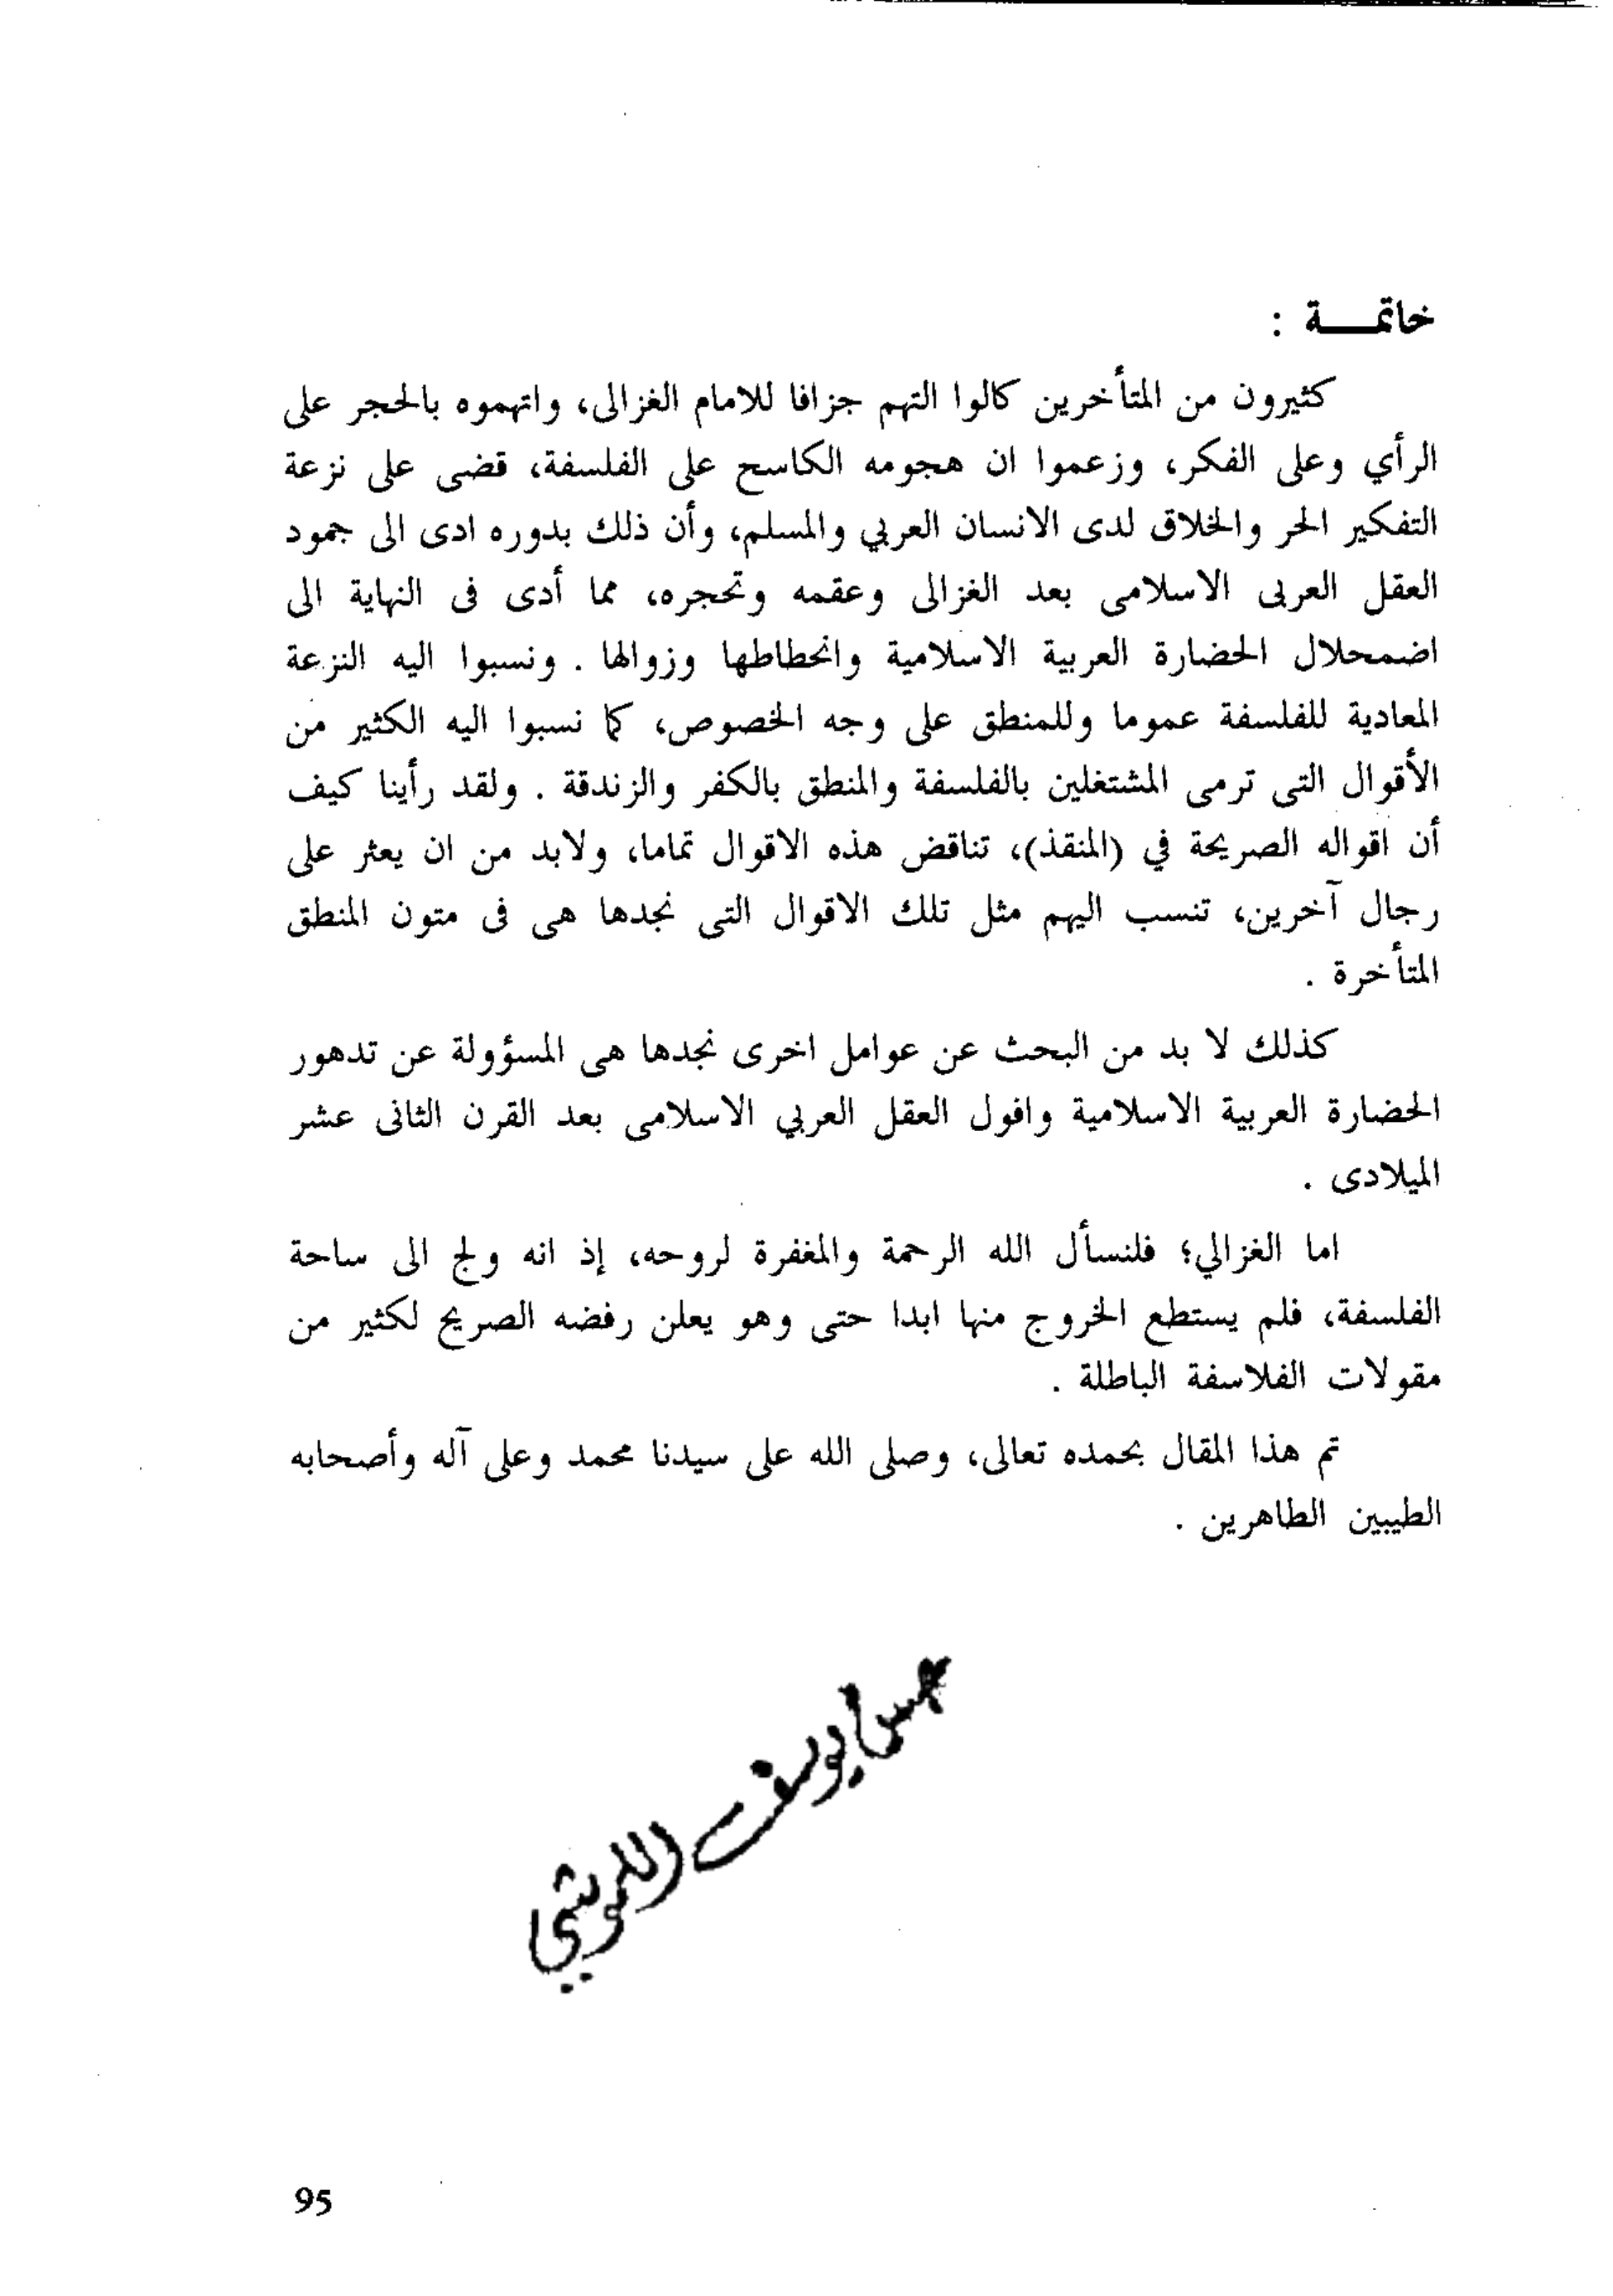 خاتمـــة :
كثيرون من المتأخرين كالوا التهم جزافا للامام الغزالى، واتهموه بالحجر على
الرأي وعلى الفكر، وزعموا ان هجومه الكاسح على الفلسفة، قضى على نزعة
التفكير الحر والخلاق لدى الانسان العربي والمسلم، وأن ذلك بدوره ادى الى جمود
العقل العربى الاسلامى بعد الغزالى وعقمه وتحجره، مما أدى فى النهاية الى
اضمحلال الحضارة العربية الاسلامية وانحطاطها وزوالها . ونسبوا اليه النزعة
المعادية للفلسفة عموما وللمنطق على وجه الخصوص، كما نسبوا اليه الكثير من
الأقوال التى ترمى المشتغلين بالفلسفة والمنطق بالكفر والزندقة . ولقد رأينا كيف
أن اقواله الصريحة في (المنقذ)، تناقض هذه الاقوال تماما، ولابد من ان يعثر على
رجال آخرين، تنسب اليهم مثل تلك الاقوال التى نجدها هى فى متون المنطق
المتأخرة .
كذلك لا بد من البحث عن عوامل اخرى نجدها هى المسؤولة عن تدهور
الحضارة العربية الاسلامية وافول العقل العربي الاسلامى بعد القرن الثانى عشر
الميلادى .
اما الغزالي؛ فلنسأل الله الرحمة والمغفرة لروحه، إذ انه ولج الى ساحة
الفلسفة، فلم يستطع الخروج منها ابدا حتى وهو يعلن رفضه الصريح لكثير من
مقولات الفلاسفة الباطلة .
تم هذا المقال بحمده تعالى، وصلى الله على سيدنا محمد وعلى آله وأصحابه
الطيبين الطاهرين .
يوسف
95